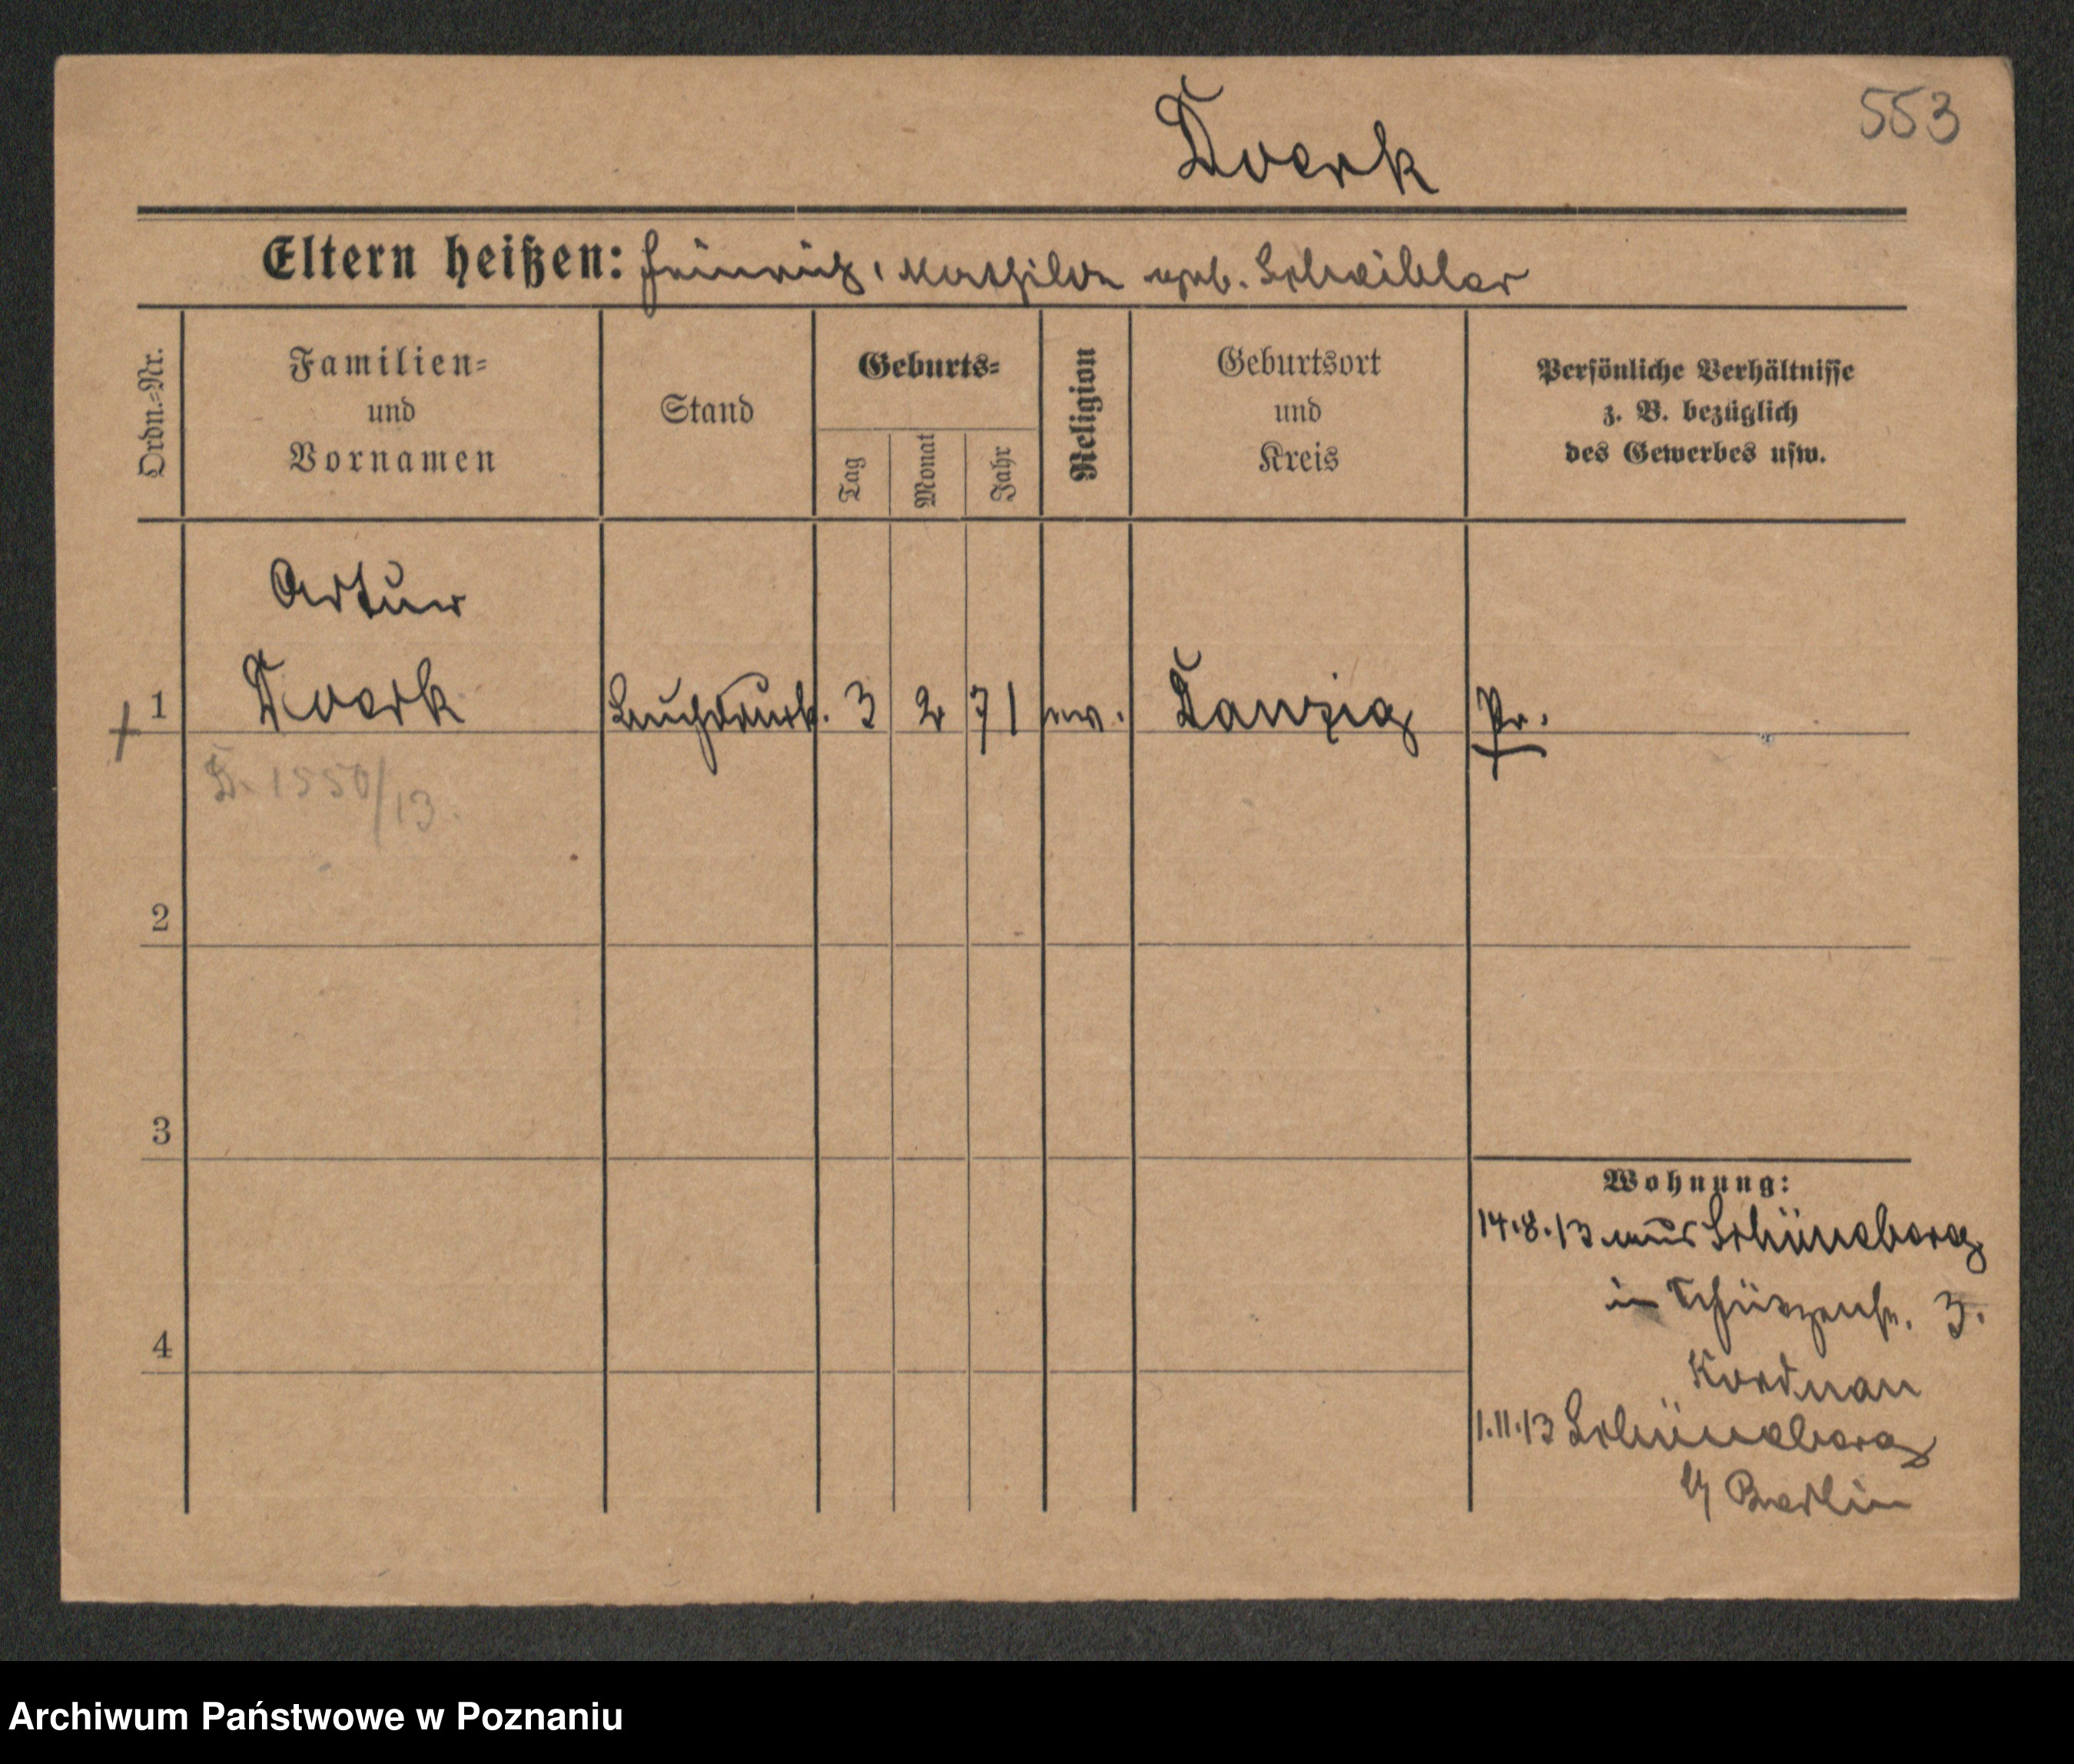 553
Doerk
Eltern heißen: Heinrich, Mathilde geb. Scheibler
Ordn.-Nr.
Familien-
und
Vornamen
Stand
Geburts-
Tag
Monat
Jahr
Religion
Geburtsort
und
Kreis
Persönliche Verhältnisse
z. B. bezüglich
des Gewerbes usw.
Artur
1 Doerk Buchdruck. 3 2 71 ev. Danzig Pr.
D. 1550/13.
2
3
4
Wohnung:
14.8.13 aus Schöneberg
in Schützenstr. 3.
Kordman
1.11.13 Schöneberg
b/ Berlin
Archiwum Państwowe w Poznaniu